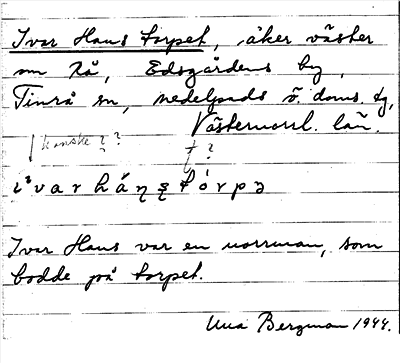 Ivar Hans torpet, åker väster
om Rå, Edsgårdens by,
Timrå sn, Medelpads ö. doms. tg,
Västernorrl. län.
kanske ? ?
?
Ivar Hans var en norrman, som
bodde på torpet.
Una Bergman 1944.